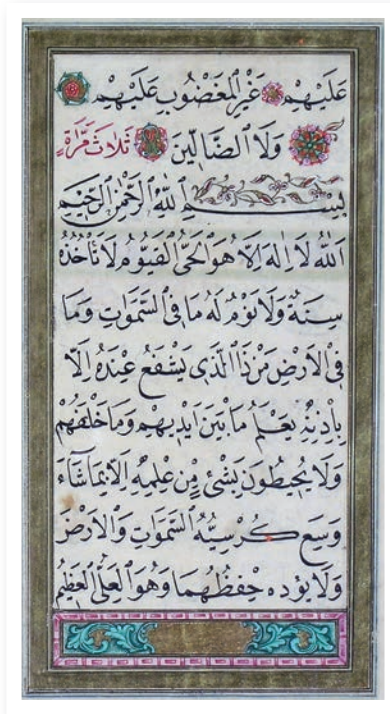 عَلَيْهِمْ غَيْرِ الْمَغْضُوبِ عَلَيْهِمْ
وَلَا الضَّالِّينَ ثَلَاثَ مَرَّاةٍ
بِسْمِ اللّٰهِ الرَّحْمٰنِ الرَّحِيمِ
اَللّٰهُ لَا اِلٰهَ اِلَّا هُوَ الْحَىُّ الْقَيُّومُ لَا تَأْخُذُهُ
سِنَةٌ وَلَا نَوْمٌ لَهُ مَا فِى السَّمٰوَاتِ وَمَا
فِى الْاَرْضِ مَنْ ذَا الَّذِى يَشْفَعُ عِنْدَهُ اِلَّا
بِاِذْنِهِ يَعْلَمُ مَا بَيْنَ اَيْدِيهِمْ وَمَا خَلْفَهُمْ
وَلَا يُحِيطُونَ بِشَئٍ مِنْ عِلْمِهِ اِلَّا بِمَا شَاءَ
وَسِعَ كُرْسِيُّهُ السَّمٰوَاتِ وَالْاَرْضَ
وَلَا يَؤُدُهُ حِفْظُهُمَا وَهُوَ الْعَلِىُّ الْعَظِيمُ